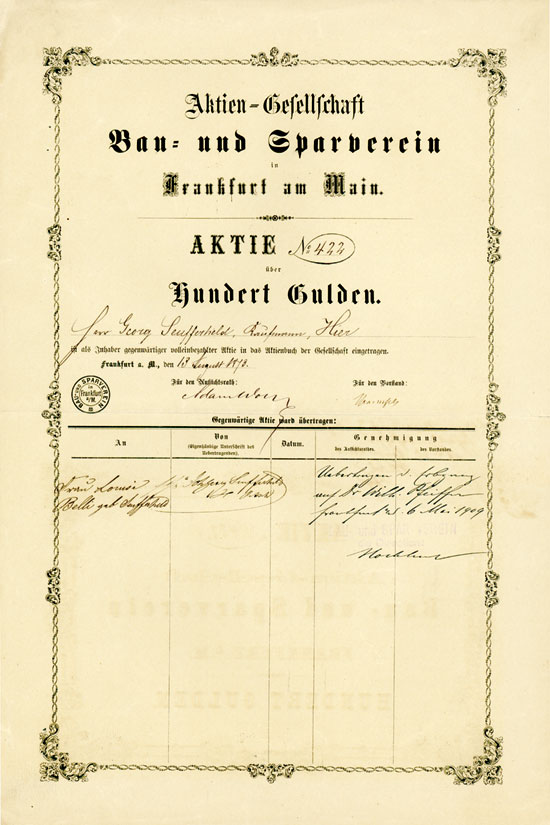 Aktien-Gesellschaft
Bau- und Sparverein
in
Frankfurt am Main.
AKTIE No 422
über
Hundert Gulden.
Herr Georg Seufferheld, Kaufmann, Hier
ist als Inhaber gegenwärtiger volleinbezahlter Aktie in das Aktienbuch der Gesellschaft eingetragen.
Frankfurt a. M., den 13 August 1873.
BAU- UND SPARVEREIN
in
Frankfurt
a/M.
Für den Aufsichtsrath:
Für den Vorstand:
Gegenwärtige Aktie ward übertragen:
An
Von
(Eigenhändige Unterschrift des
Uebertragenden).
Datum.
Genehmigung
des Aufsichtsrathes.
des Vorstandes.
Frau Louise
Belli geb Seufferheld
Uebertragen
auf Dr Wilh. Pfeiffer
Frankfurt d. 6 Mai 1909